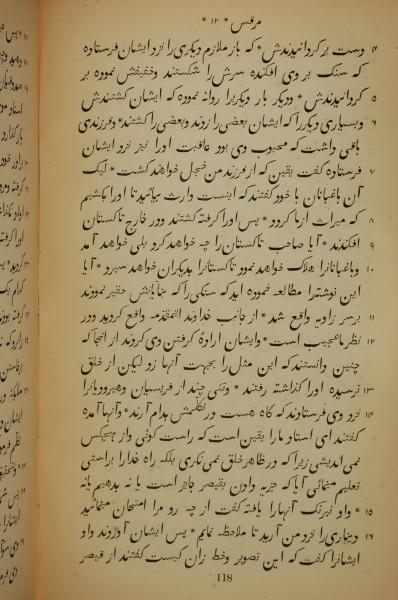 مرقس * ۱۲ *
۴ دست بر کردانیدندش * که باز ملازم دیکری را نزد ایشان فرستاده
که سنک بر وی افکنده سرش را شکستند و خفیفش نموده بر
۵ کردانیدندش * و دیکر بار دیکریرا روانه نموده که ایشان کشتندش
۶ و بسیاری دیکر را که ایشان بعضی را زدند و بعضی را کشتند * و فرزندی
باقی داشت که محبوب وی بود عاقبت اورا نیز نزد ایشان
۷ فرستاده کفت یقین که از فرزند من خجل خواهند کشت * لیک
آن باغبانان با خود کفتند که اینست وارث بیائید تا اورا بکشیم
۸ که میراث ازما کردد * پس اورا کرفته کشتند و در خارج تاکستان
۹ افکندند * آیا صاحب تاکستان را چه خواهد کرد بلی خواهد آمد
۱۰ و باغبانانرا هلاک خواهد نمود تاکستانرا بدیکران خواهد سپرد * آیا
این نوشته را مطالعه ننموده اید که سنکی را که بنایانش حقیر نمودند
۱۱ بر سر زاویه واقع شد * از جانب خداوند این مقدمه واقع کردید و در
۱۲ نظر ما عجیب است * و ایشان ارادهٔ کرفتن وی کردند از آنجا که
چنین دانستند که این مثل را بجهت آنها زد لیکن از خلق
۱۳ ترسیده اورا کذاشته رفتند * و تنی چند از فریسیان و هیرودیانرا
۱۴ نزد وی فرستادند که کاه هست در تکلمش بدام آرند * و آنها آمده
کفتند ای استاد مارا یقین است که راست کوئی و از هیچکس
نمی اندیشی زیرا که در ظاهر خلق نمی نکری بلکه راه خدارا براستی
تعلیم مینمائی آیا که جزیه دادن بقیصر جایز است یا نه بدهیم یا نه
۱۵ * و او نیرنک آنهارا یافته کفت از چه رو مرا امتحان مینمائید
۱۶ دیناری را نزد من آرید تا ملاحظه نمایم * پس ایشان آوردند و او
ایشانرا کفت که این تصویر و خط ازان کیست کفتند از قیصر
118